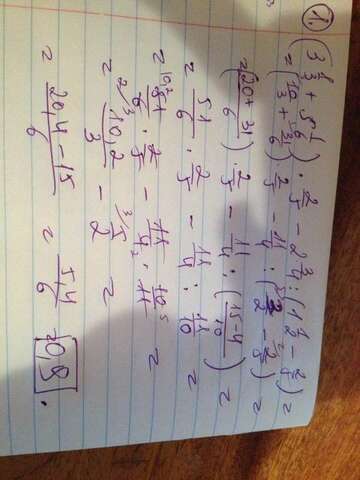 1.) (3 1/3 + 5 1/6) · 2/5 - 2 3/4 : (1 1/2 - 2/5) =
= (10/3 + 31/6) · 2/5 - 11/4 : (3/2 - 2/5) =
= (20+31/6) · 2/5 - 11/4 : (15-4/10) =
= 51/6 · 2/5 - 11/4 : 11/10 =
= 51/6 · 2/5 - 11/4 · 10/11 =
= 10,2/3 - 5/2 =
= 20,4-15/6 = 5,4/6 = 0,9.